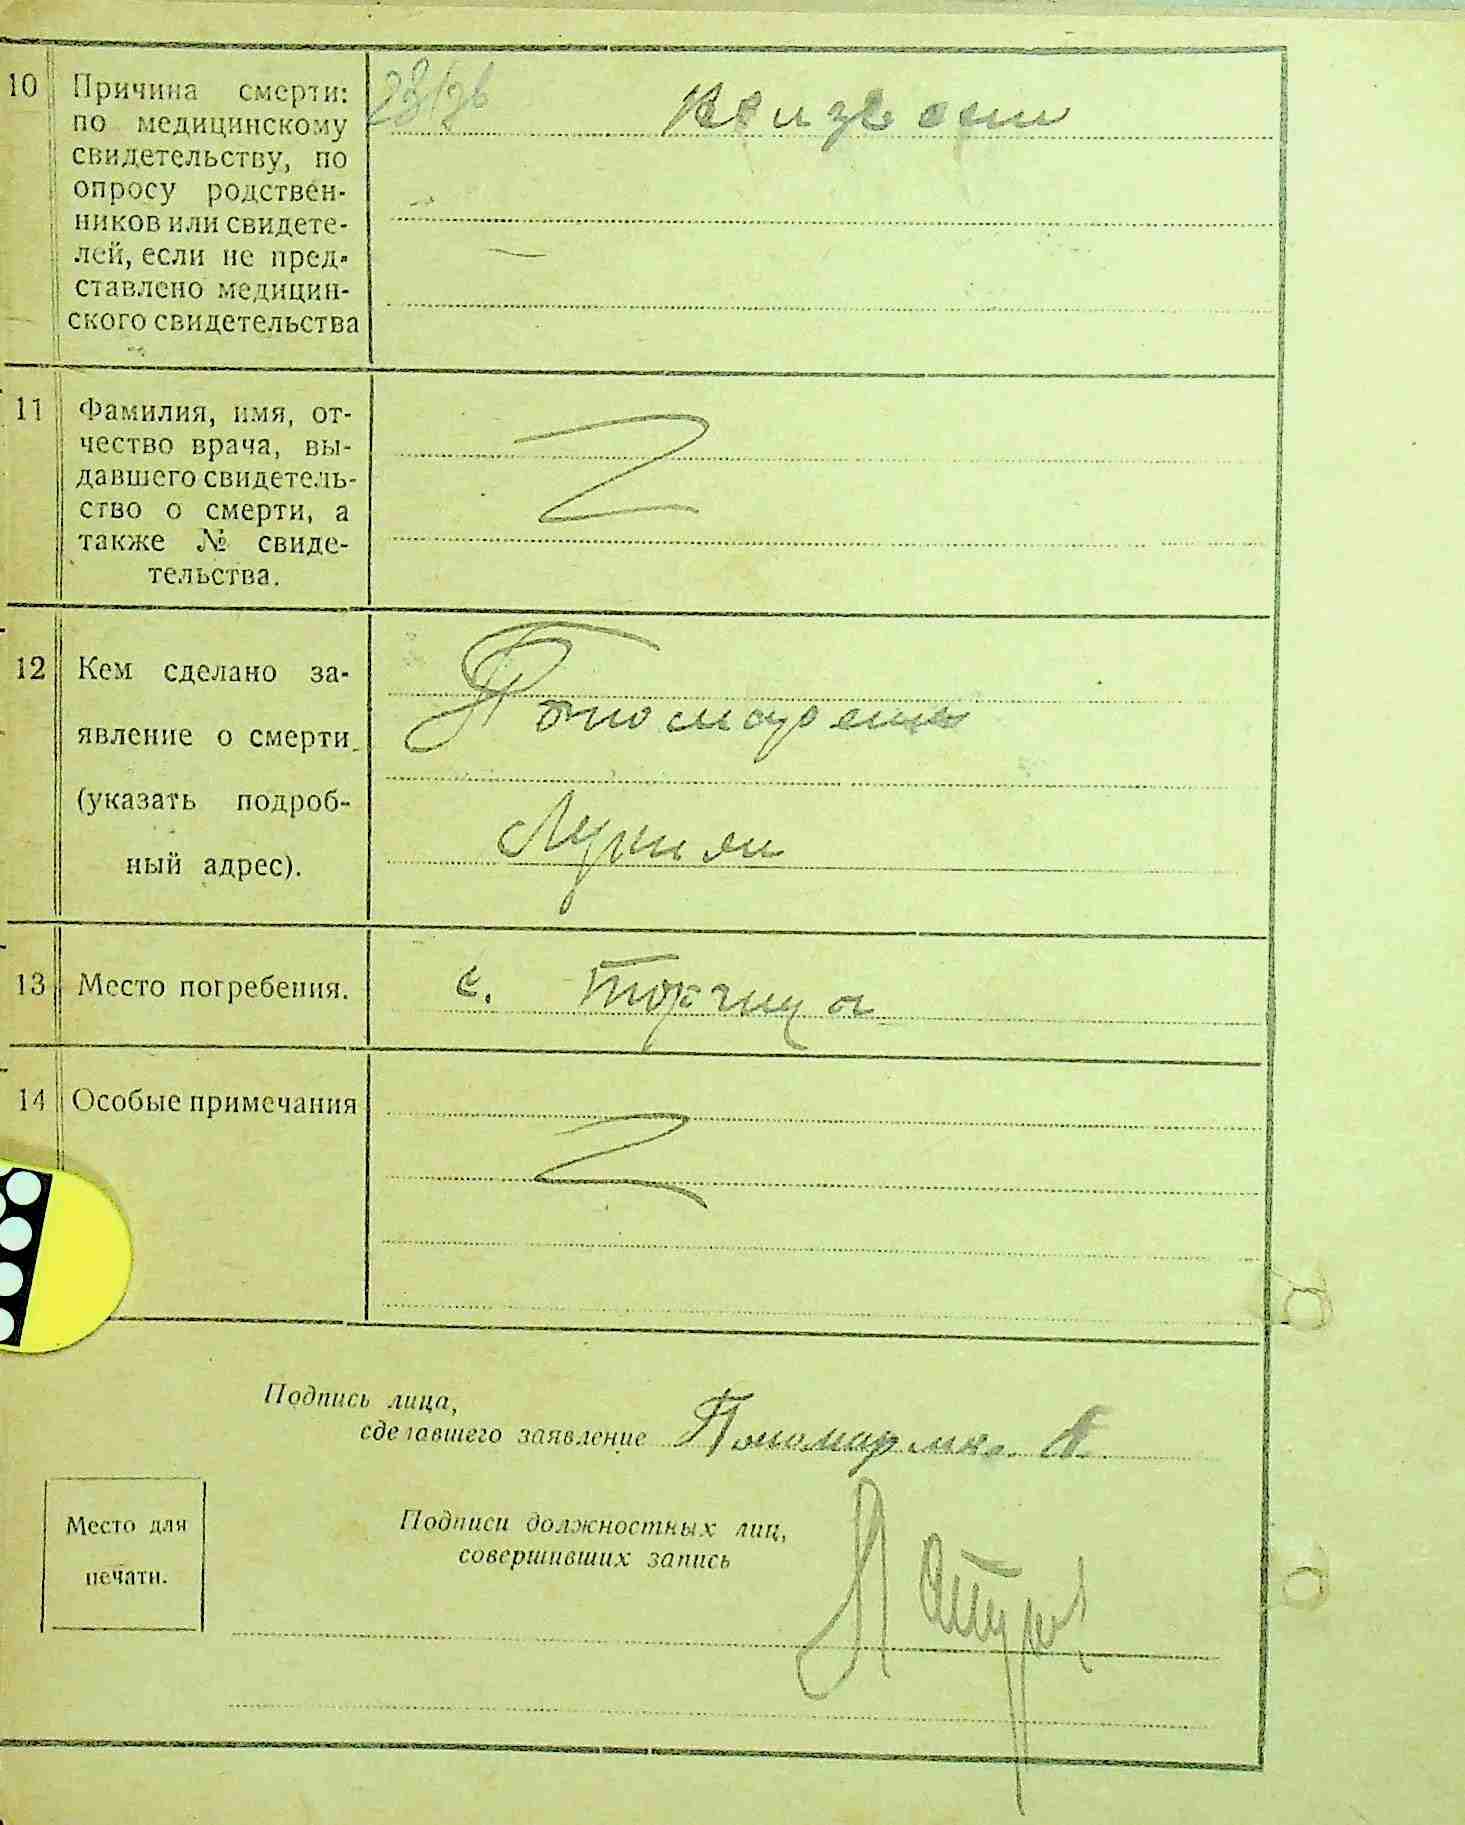 10 Причина смерти:
по медицинскому
свидетельству, по
опросу родствен-
ников или свидете-
лей, если не пред-
ставлено медицин-
ского свидетельства
11 Фамилия, имя, от-
чество врача, вы-
давшего свидетель-
ство о смерти, а
также № свиде-
тельства.
12 Кем сделано за-
явление о смерти
(указать подроб-
ный адрес).
Пономаренко
13 Место погребения.
с.
14 Особые примечания
Подпись лица,
сделавшего заявление Пономаренко
Подписи должностных лиц,
совершивших запись
Место для
печати.